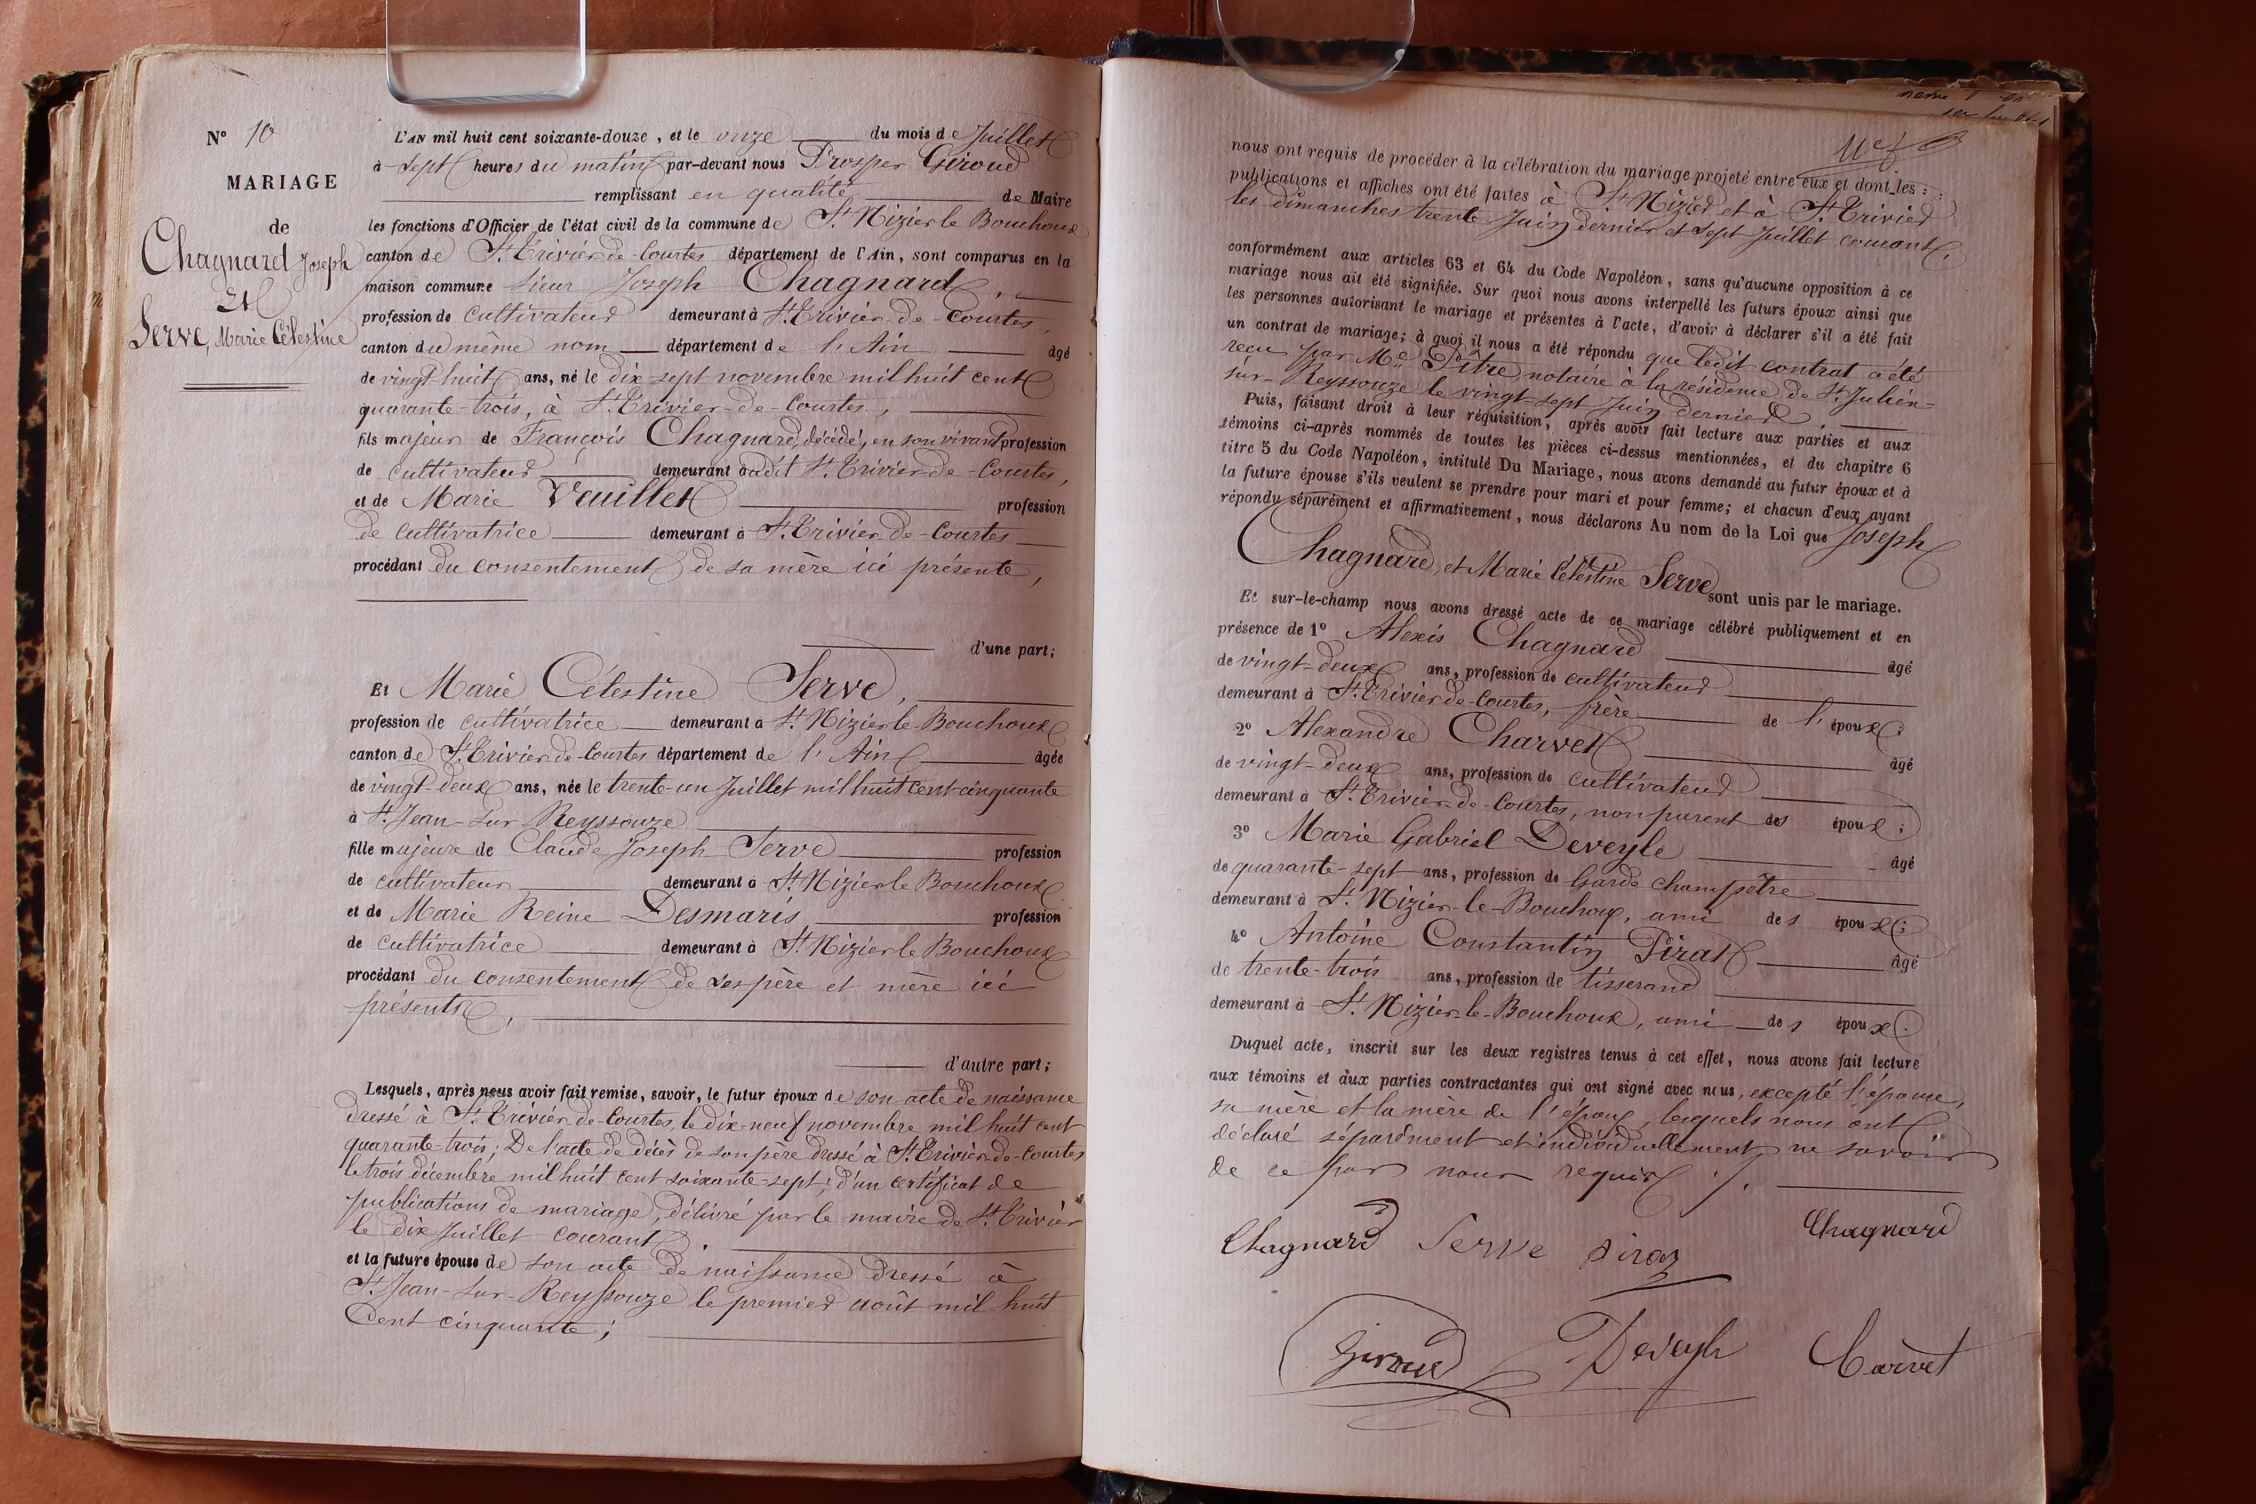 N° 10
MARIAGE
de
Chagnard Joseph
Et
Serve, Marie Célestine
L'AN mil huit cent soixante-douze, et le onze du mois de Juillet
à sept heures du matin par-devant nous Prosper Giroud
remplissant en qualité de Maire
les fonctions d'Officier de l'état civil de la commune de St Nizier le Bouchoux
canton de St Trivier-de-Courtes département de l'Ain, sont comparus en la
maison commune sieur Joseph Chagnard,
profession de cultivateur demeurant à St Trivier-de-Courtes,
canton du même nom département de l'Ain âgé
de vingt-huit ans, né le dix-sept novembre mil huit cent
quarante-trois, à St Trivier-de-Courtes,
fils majeur de François Chagnard, décédé, en son vivant profession
de cultivateur demeurant audit St Trivier-de-Courtes,
et de Marie Veuillet profession
de cultivatrice demeurant à St Trivier-de-Courtes
procédant du consentement de sa mère ici présente,
d'une part;
Et Marie Célestine Serve,
profession de cultivatrice demeurant à St Nizier le Bouchoux
canton de St Trivier-de-Courtes département de l'Ain âgée
de vingt-deux ans, née le trente-un Juillet mil huit cent cinquante
à St Jean-sur-Reyssouze
fille majeure de Claude Joseph Serve profession
de cultivateur demeurant à St Nizier le Bouchoux
et de Marie Reine Desmaris profession
de cultivatrice demeurant à St Nizier le Bouchoux
procédant du consentement de ses père et mère ici
présents,
d'autre part;
Lesquels, après nous avoir fait remise, savoir, le futur époux de son acte de naissance
dressé à St Trivier-de-Courtes, le dix-neuf novembre mil huit cent
quarante-trois; De l'acte de décès de son père dressé à St Trivier-de-Courtes
le trois décembre mil huit cent soixante-sept; d'un certificat de
publications de mariage, délivré par le maire de St Trivier
le dix Juillet courant.
et la future épouse de son acte de naissance dressé à
St Jean-sur-Reyssouze le premier août mil huit
cent cinquante;
nous ont requis de procéder à la célébration du mariage projeté entre eux et dont les
publications et affiches ont été faites à St Nizier et à St Trivier
les dimanches trente Juin dernier et sept Juillet courant,
conformément aux articles 63 et 64 du Code Napoléon, sans qu'aucune opposition à ce
mariage nous ait été signifiée. Sur quoi nous avons interpellé les futurs époux ainsi que
les personnes autorisant le mariage et présentes à l'acte, d'avoir à déclarer s'il a été fait
un contrat de mariage; à quoi il nous a été répondu que ledit contrat a été
reçu par Me Pitre, notaire à la résidence de St Julien-
sur-Reyssouze le vingt-sept Juin dernier.
Puis, faisant droit à leur réquisition, après avoir fait lecture aux parties et aux
témoins ci-après nommés de toutes les pièces ci-dessus mentionnées, et du chapitre 6
titre 5 du Code Napoléon, intitulé Du Mariage, nous avons demandé au futur époux et à
la future épouse s'ils veulent se prendre pour mari et pour femme; et chacun d'eux ayant
répondu séparément et affirmativement, nous déclarons Au nom de la Loi que Joseph
Chagnard, et Marie Célestine Serve sont unis par le mariage.
Et sur-le-champ nous avons dressé acte de ce mariage célébré publiquement et en
présence de 1° Alexis Chagnard âgé
de vingt-deux ans, profession de cultivateur
demeurant à St Trivier-de-Courtes, frère de l'époux;
2° Alexandre Charvet âgé
de vingt-deux ans, profession de cultivateur
demeurant à St Trivier-de-Courtes, non parent des époux;
3° Marie Gabriel Deveyle âgé
de quarante-sept ans, profession de Garde champêtre
demeurant à St Nizier-le-Bouchoux, ami des époux;
4° Antoine Constantin Pirat âgé
de trente-trois ans, profession de tisserand
demeurant à St Nizier-le-Bouchoux, ami des époux.
Duquel acte, inscrit sur les deux registres tenus à cet effet, nous avons fait lecture
aux témoins et aux parties contractantes qui ont signé avec nous, excepté l'épouse,
sa mère et la mère de l'époux, lesquels nous ont
déclaré séparément et individuellement ne savoir
de ce par nous requis.
Chagnard Serve Pirat Chagnard
Giroud Deveyle Carvet